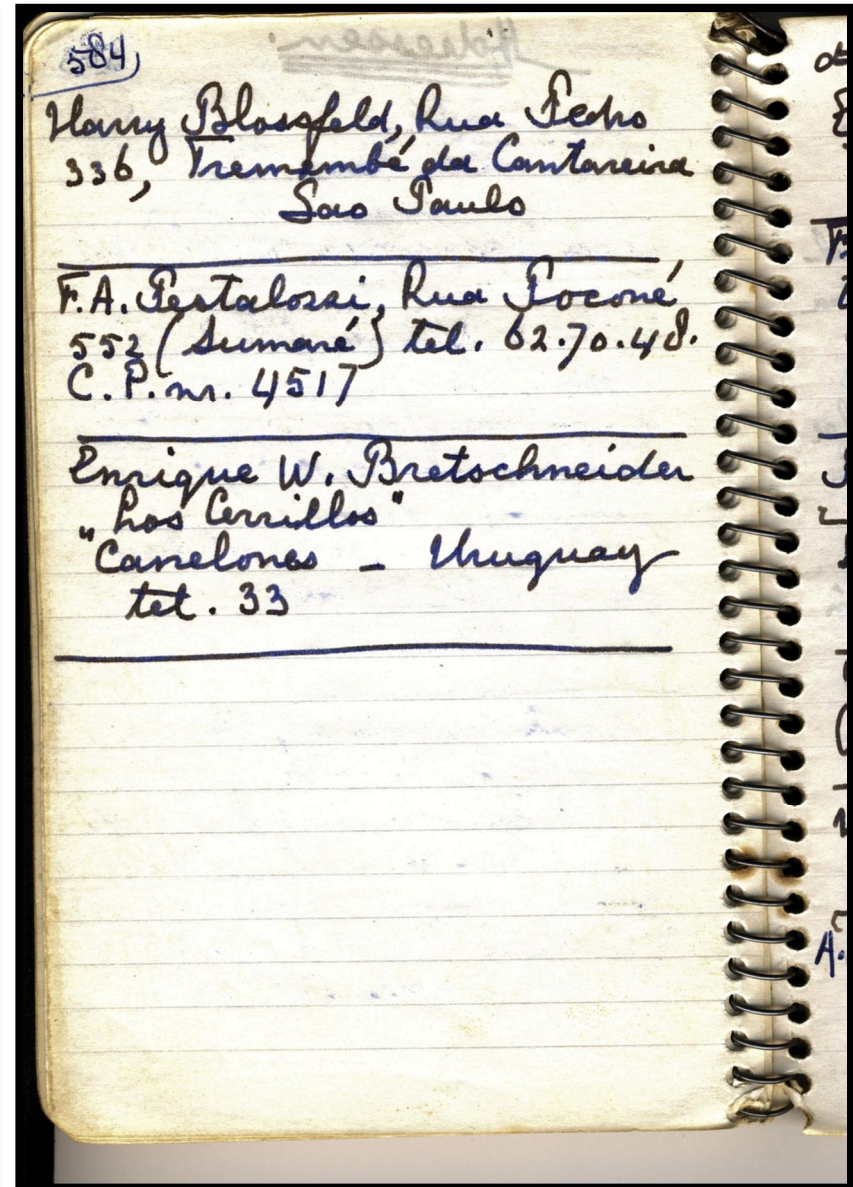 584
Harry Blossfeld, Rua Pedro
336, Tremembé da Cantareira
Sao Paulo
F.A. Pestalozzi, Rua Poconé
552 (Sumaré) tel. 62.70.48.
C.P. nr. 4517
Enrique W. Bretschneider
„Los Cerrillos"
Canelones - Uruguay
tel. 33
A.